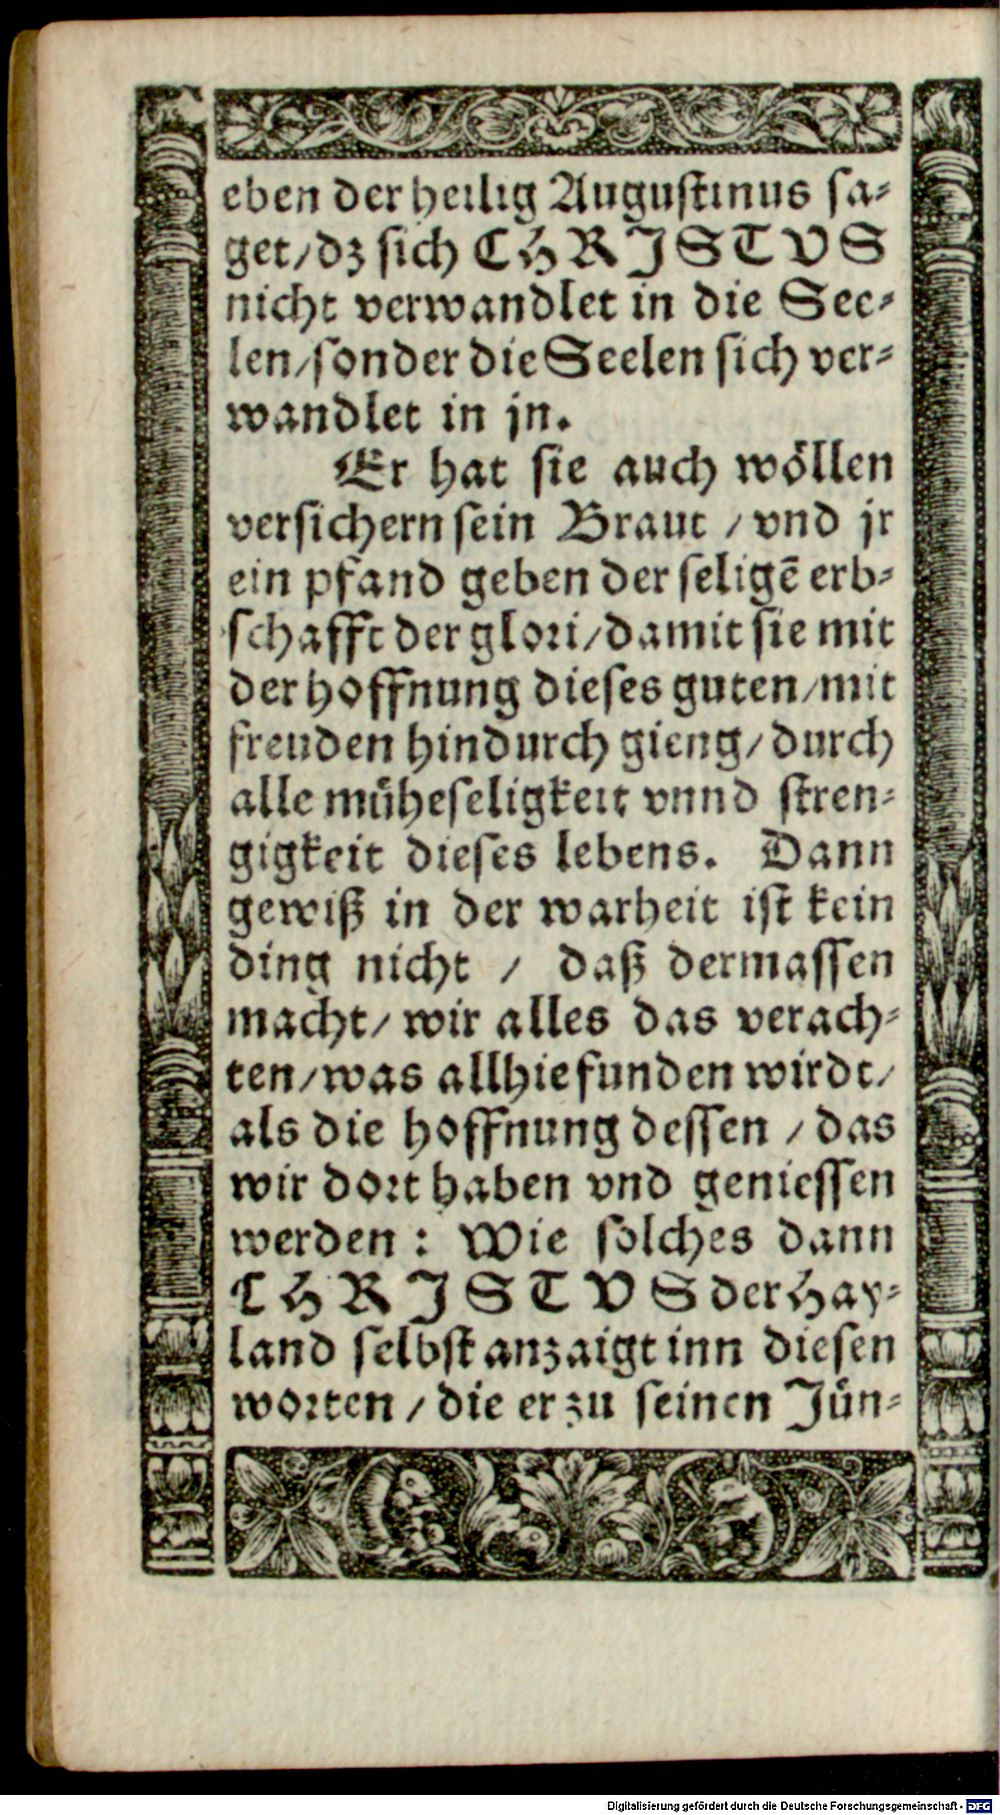 eben der heilig Augustinus sa⸗
get/dz sich CHRISTVS
nicht verwandlet in die See⸗
len/sonder die Seelen sich ver⸗
wandlet in jn.
Er hat sie auch wöllen
versichern sein Braut / vnd jr
ein pfand geben der seligē erb⸗
schafft der glori/damit sie mit
der hoffnung dieses guten/mit
freuden hindurch gieng/durch
alle müheseligkeit vnnd stren⸗
gigkeit dieses lebens. Dann
gewiß in der warheit ist kein
ding nicht / daß dermassen
macht/ wir alles das verach⸗
ten/was allhie funden wirdt/
als die hoffnung dessen / das
wir dort haben vnd geniessen
werden : Wie solches dann
CHRISTVS der Hay⸗
land selbst anzaigt inn diesen
worten / die er zu seinen Jün⸗
Digitalisierung gefördert durch die Deutsche Forschungsgemeinschaft - DFG